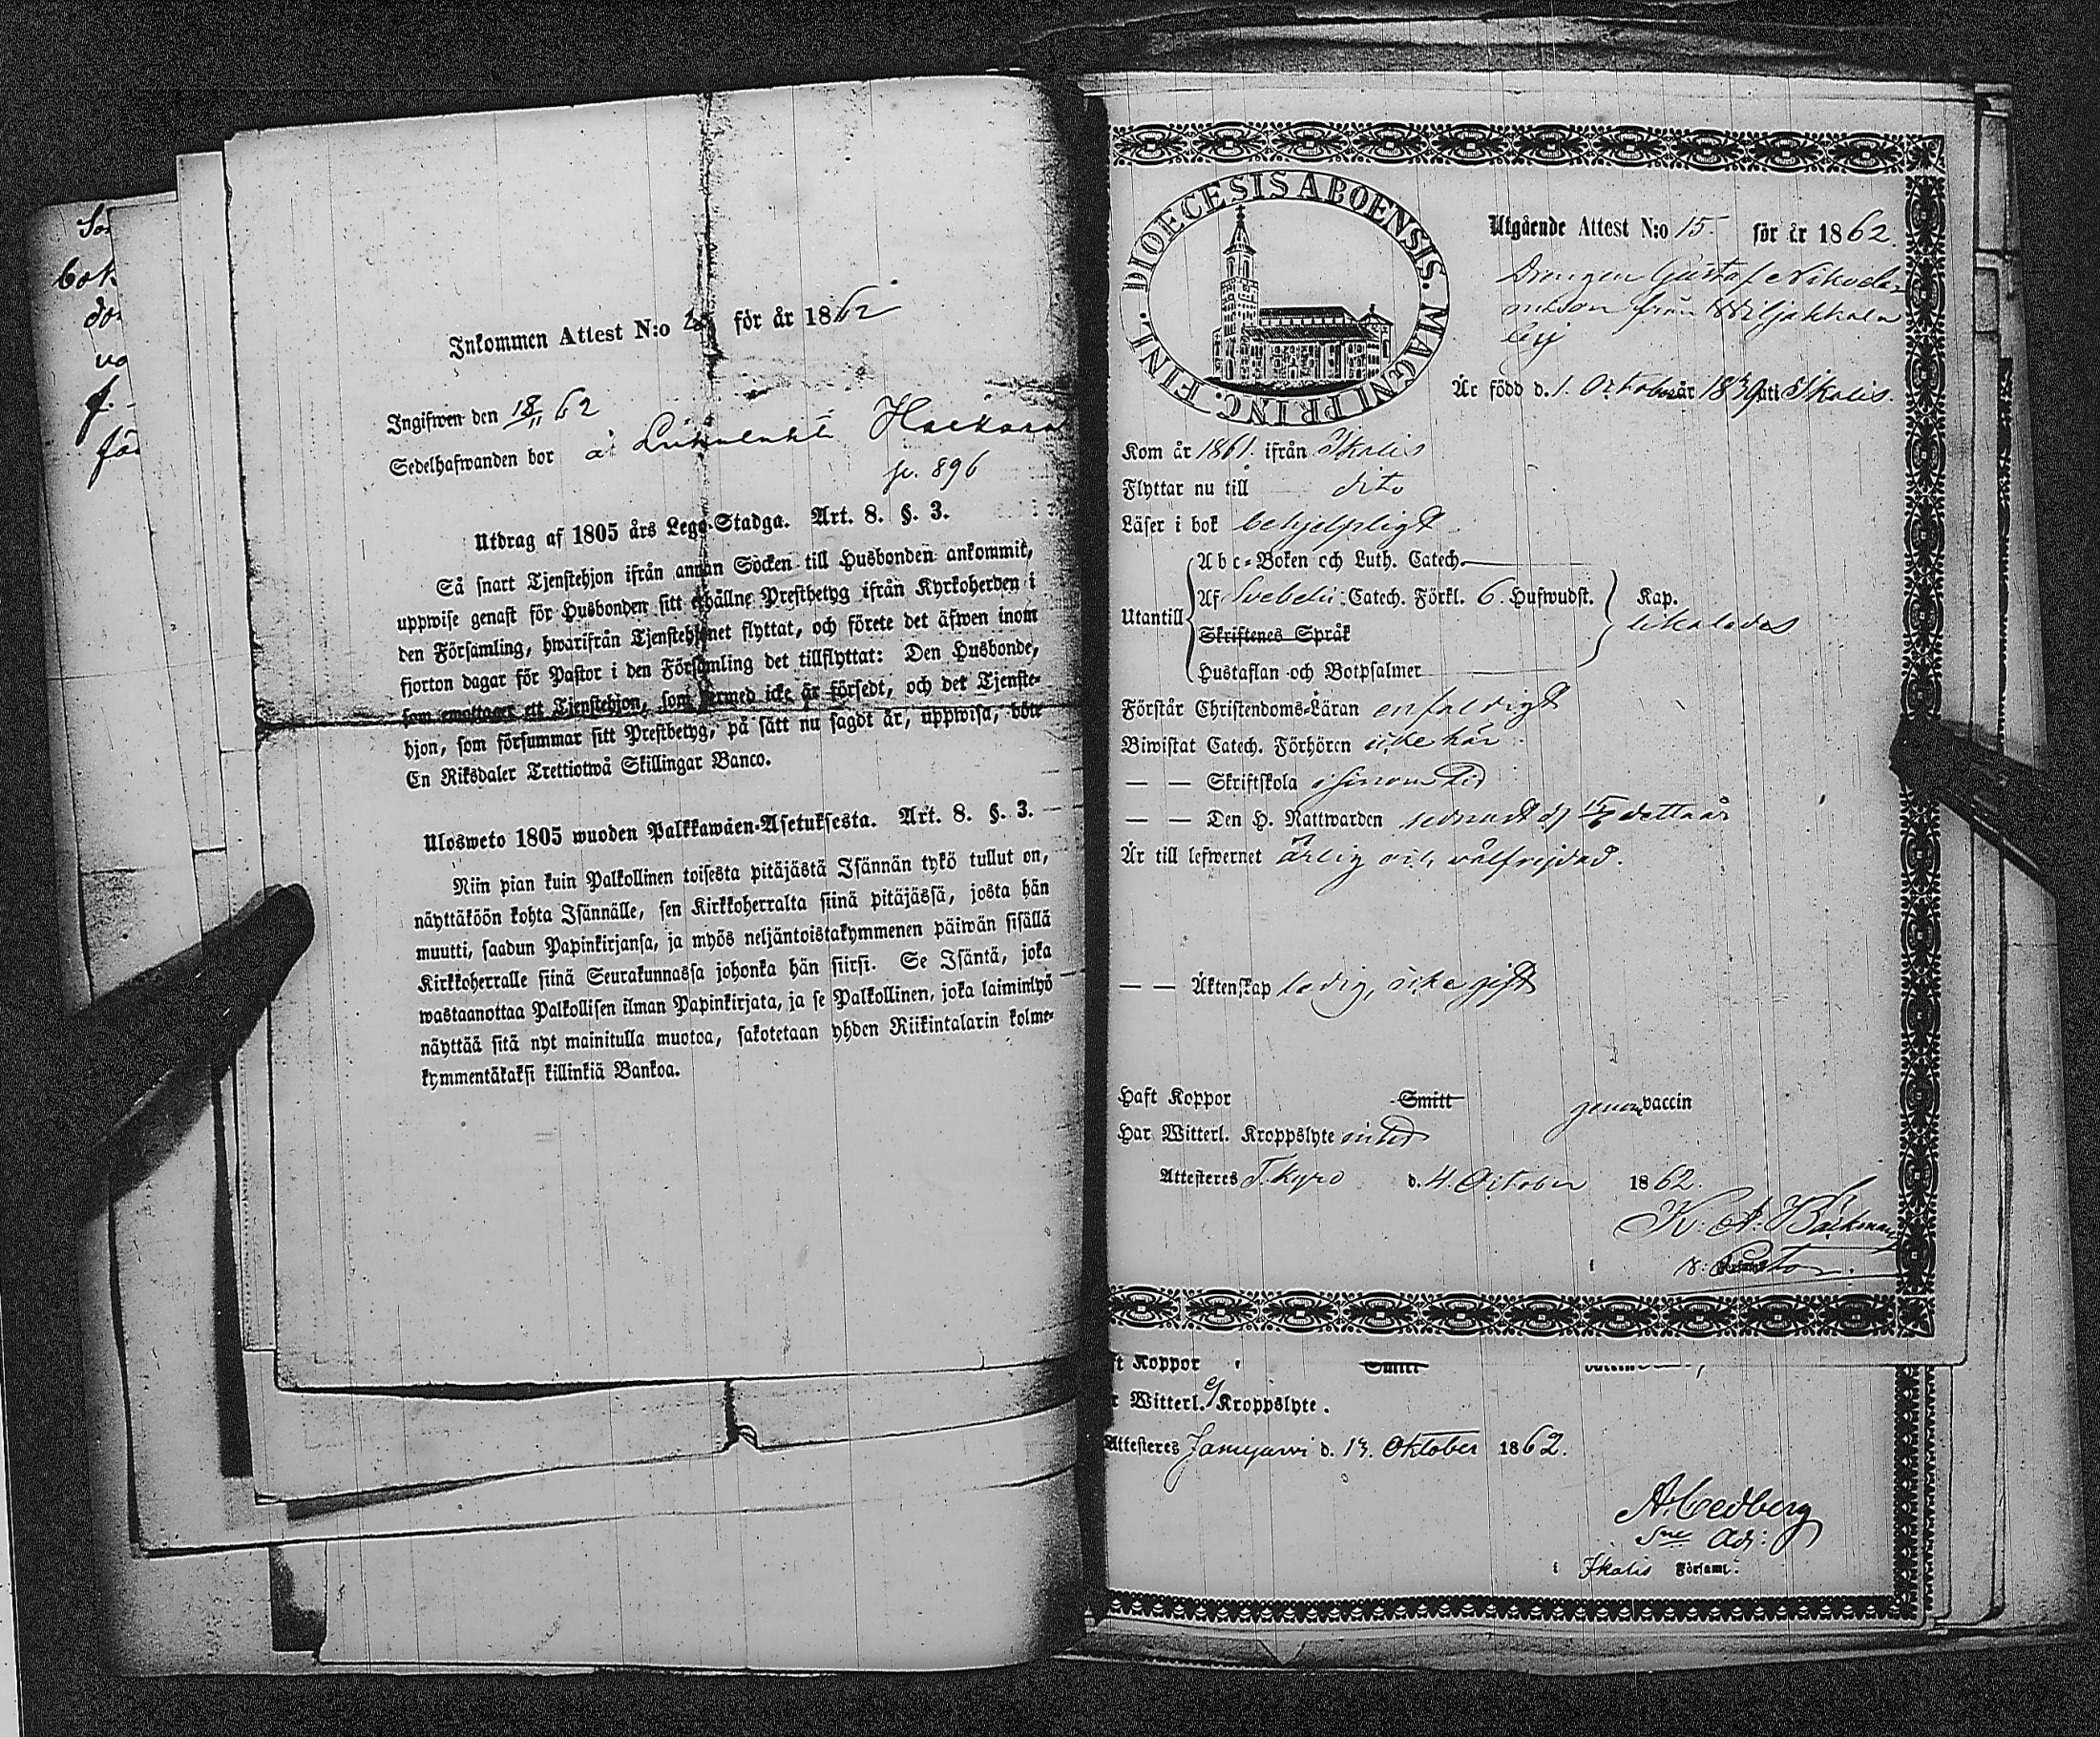 So
bok
do
va
f. -
fär
Inkommen Attest N:o för år 1862
Ingifwen den 18/11 62
Sedelhafwanden bor å
p. 896
Utdrag af 1805 års Lego-Stadga. Art. 8. §. 3.
Så snart Tjenstehjon ifrån annan Socken till Husbonden ankommit,
uppwise genast för Husbonden sitt erhållne Prestbetyg ifrån Kyrkoherden i
den Församling, hwarifrån Tjenstehjonet flyttat, och förete det äfwen inom
fjorton dagar för Pastor i den Församling det tillflyttat: Den Husbonde,
som emottager ett Tjenstehjon, som dermed icke är försedt, och det Tjenste-
hjon, som försummar sitt Prestbetyg, på sätt nu sagdt är, uppwisa, böte
En Riksdaler Trettiotwå Skillingar Banco.
Ulosweto 1805 wuoden Palkkawäen-Asetuksesta. Art. 8. §. 3.
Niin pian kuin Palkollinen toisesta pitäjästä Isännän tykö tullut on,
näyttäköön kohta Isännälle, sen Kirkkoherralta siinä pitäjässä, josta hän
muutti, saadun Papinkirjansa, ja myös neljäntoistakymmenen päiwän sisällä
Kirkkoherralle siinä Seurakunnassa johonka hän siirsi. Se Isäntä, joka
wastaanottaa Palkollisen ilman Papinkirjata, ja se Palkollinen, joka laiminlyö
näyttää sitä nyt mainitulla muotoa, sakotetaan yhden Riikintalarin kolme-
kymmentäkaksi killinkiä Bankoa.
DIOECESIS ABOENSIS. MAGNI PRINC. FINL.
Utgående Attest N:o 15 för år 1862.
Drengen Gustaf Nikode-
musson från Wiljakkala
by
Är född d. 1. October år 18 uti Ikalis.
Kom år 1861. ifrån Ikalis
Flyttar nu till dito
Läser i bok behjelpligt
Utantill
Abc-Boken och Luth. Catech.
Af Svebelii Catech. Förkl. 6. Hufwudst.
Skriftenes Språk
Hustaflan och Botpsalmer
Kap.
likaledes
Förstår Christendoms-Läran enfaldigt
Biwistat Catech. Förhören icke här
— — Skriftskola i sinom tid
— — Den H. Nattwarden sednast d. 15/6 detta år
Är till lefwernet ärlig och välfrejdad.
— — Äktenskap ledig, icke gift
Haft Koppor Smitt genom vaccin
Har Witterl. Kroppslyte intet
Attesteres T. kyro d. 4. October 1862.
K. A. Bäckman
v. Pastor.
ft Koppor Smitt
r Witterl. Kroppslyte.
Attesteres Jämijärwi d. 13. Oktober 1862.
A. Cedberg
Sne Adj:
i Ikalis Församl.